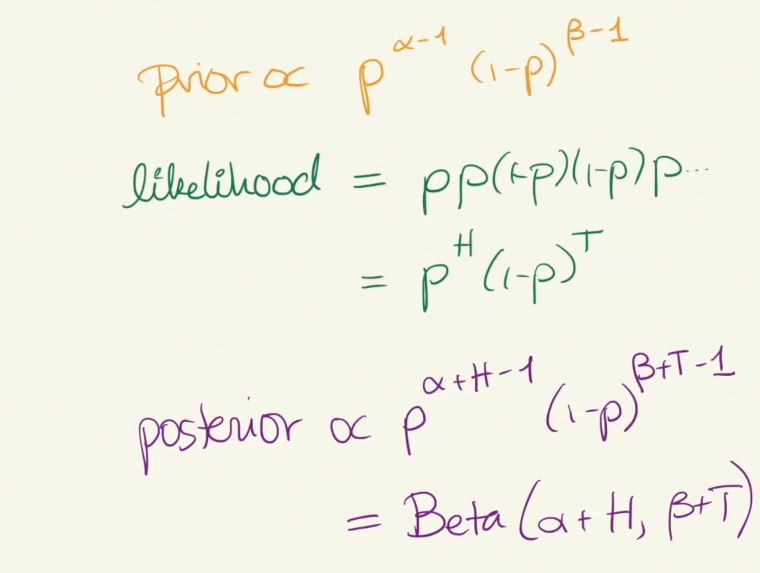 prior ∝ p^(α-1) (1-p)^(β-1)
likelihood = pp(1-p)(1-p)p...
= p^H (1-p)^T
posterior ∝ p^(α+H-1) (1-p)^(β+T-1)
= Beta(α+H, β+T)